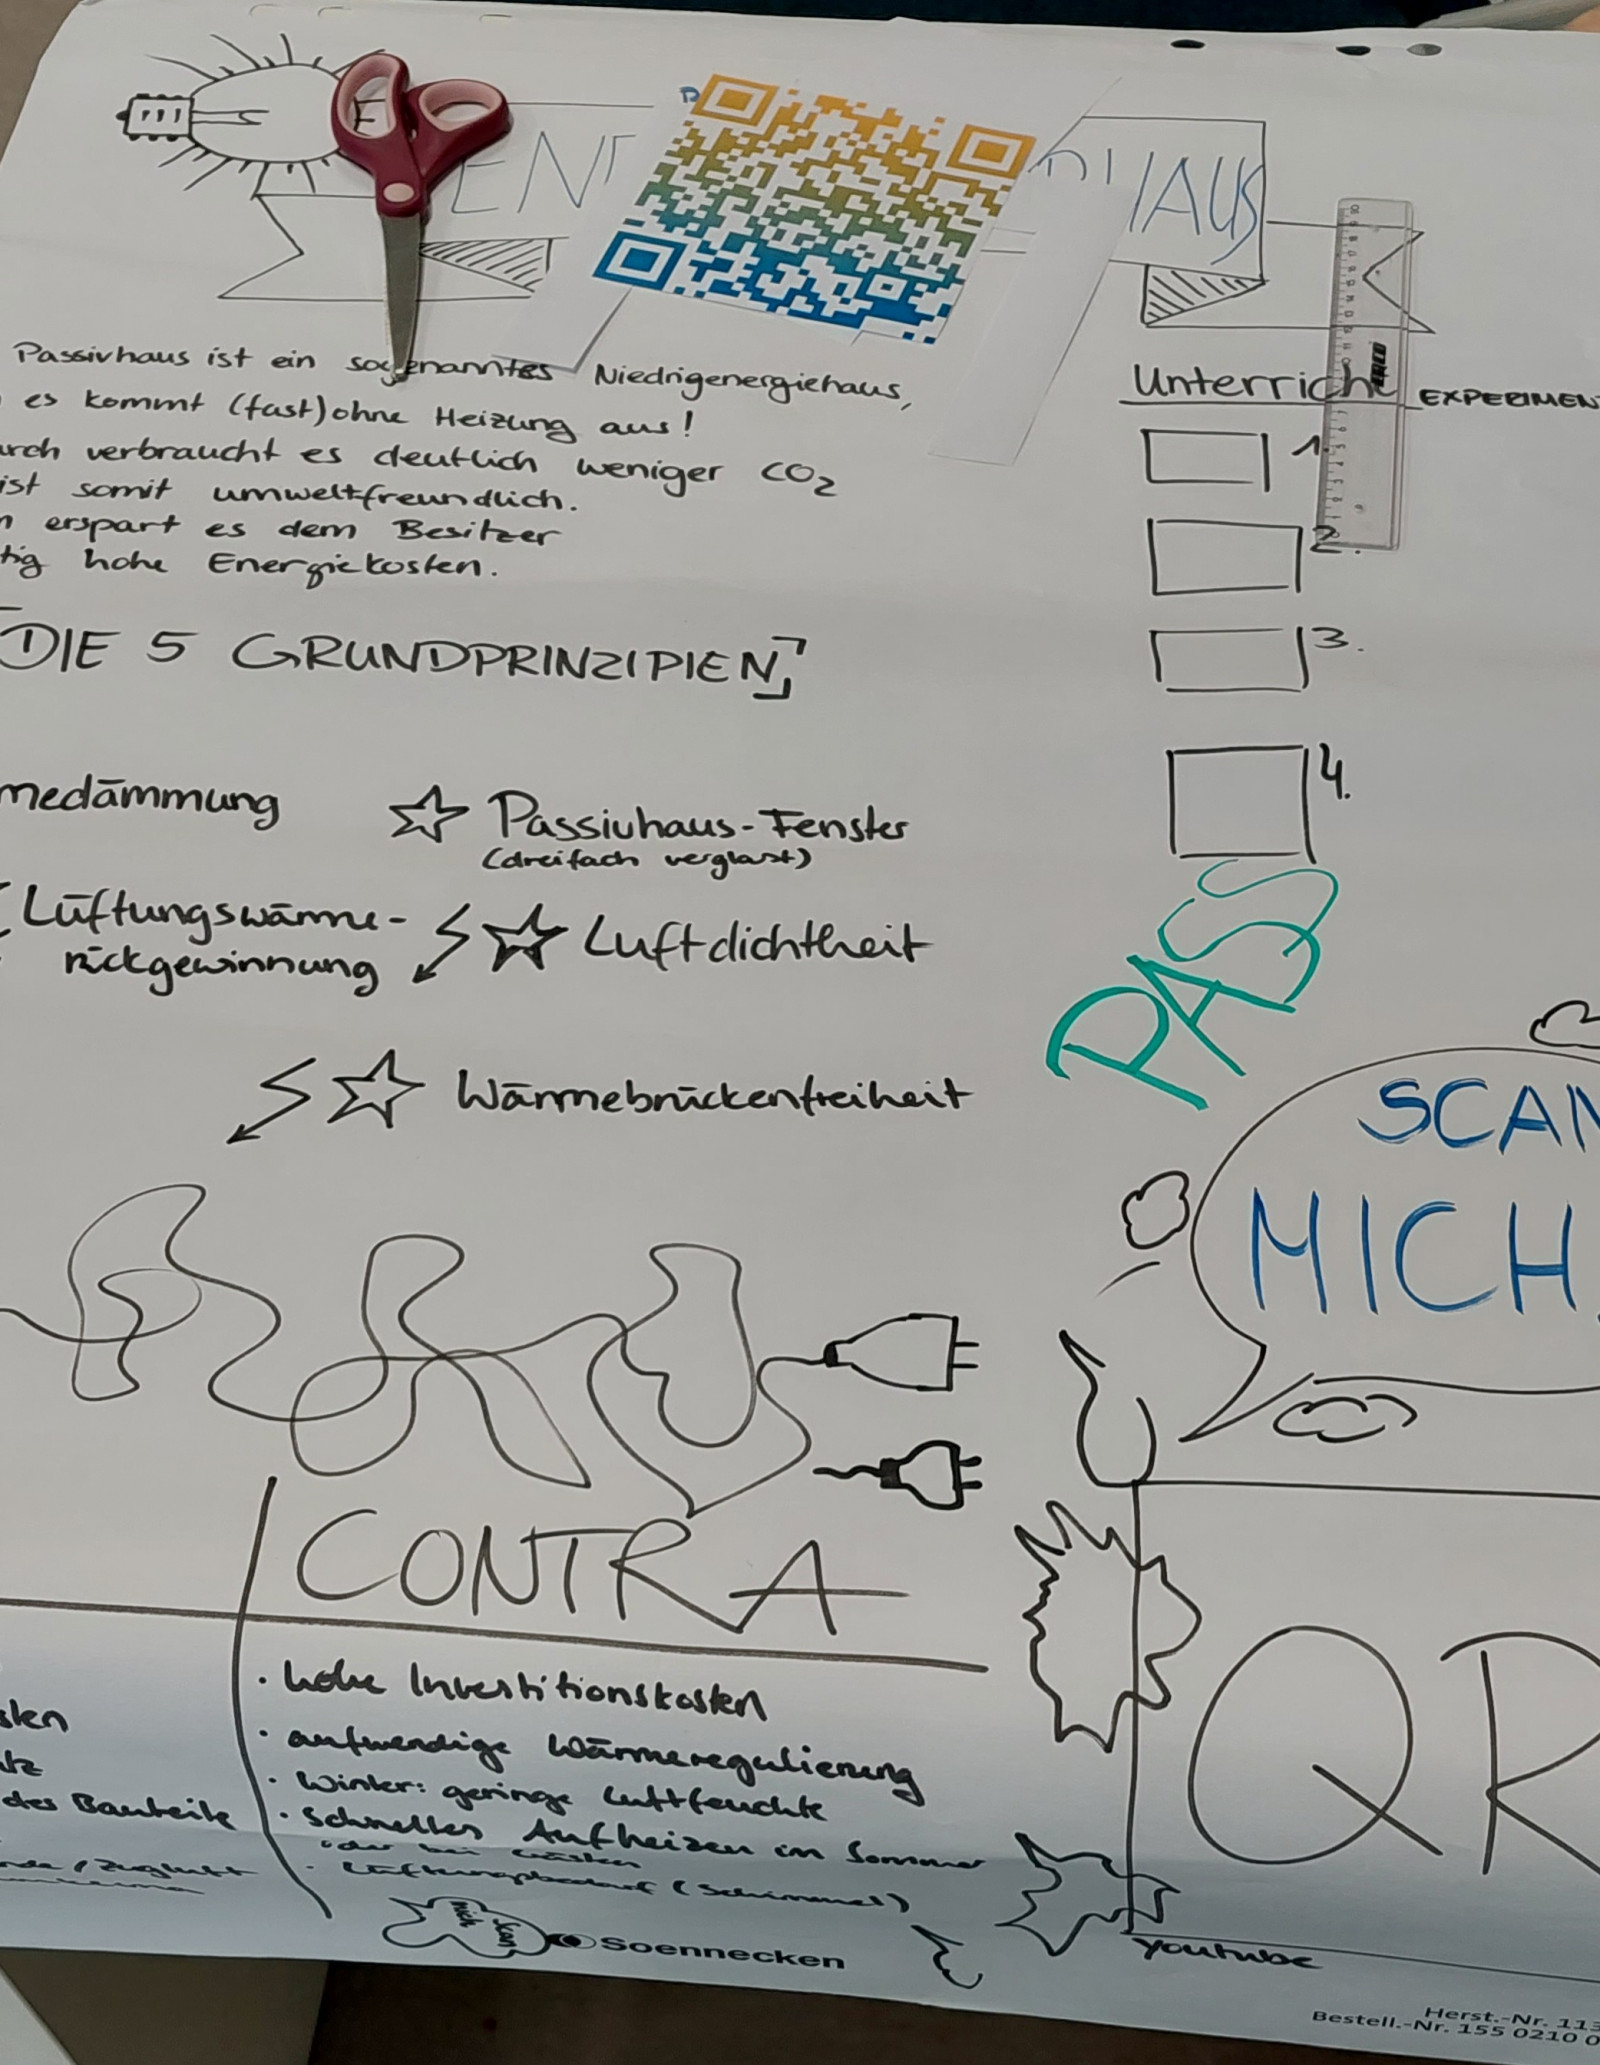 ENT
HAUS
Passivhaus ist ein sogenanntes Niedrigenergiehaus,
es kommt (fast) ohne Heizung aus!
urch verbraucht es deutlich weniger CO2
ist somit umweltfreundlich.
n erspart es dem Besitzer
tig hohe Energiekosten.
Unterricht EXPERIMEN
1.
2.
3.
4.
DIE 5 GRUNDPRINZIPIEN
medämmung
Passivhaus-Fenster
(dreifach verglast)
Lüftungswärme-
rückgewinnung
Luftdichtheit
Wärmebrückenfreiheit
PASS
SCAN
MICH
CONTRA
· hohe Investitionskosten
· aufwendige Wärmeregulierung
· Winter: geringe Luftfeuchte
· schnelles Aufheizen im Sommer
oder bei Gästen
· Lüftungsbedarf (Schimmel)
sten
tz
des Bauteile
/ Zugluft
QR
youtube
Scan
mich
Soennecken
Herst.-Nr. 113
Bestell.-Nr. 155 0210 0